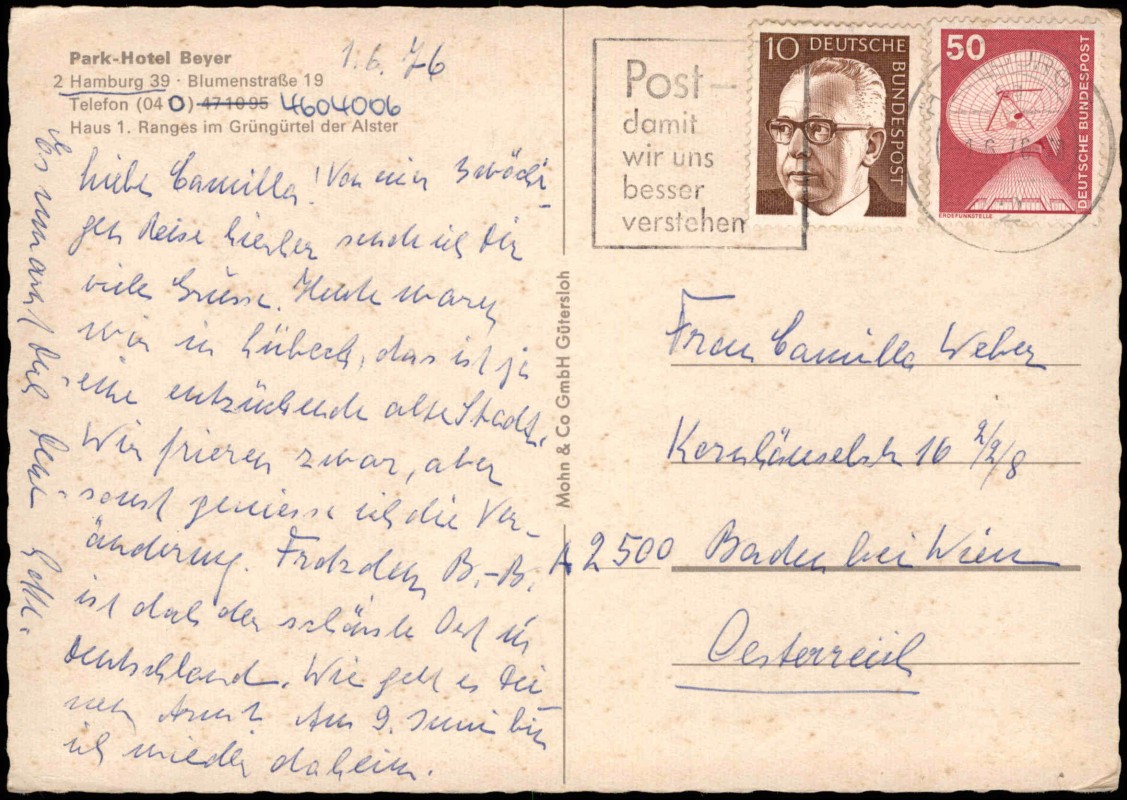 Park-Hotel Beyer
1.6.76
2 Hamburg 39 · Blumenstraße 19
Telefon (040) 47 10 95 4604006
Haus 1. Ranges im Grüngürtel der Alster
Liebe Camilla! Von einer 3 wöchi-
gen Reise hierher sende ich Dir
viele Grüsse. Heute waren
wir in Lübeck, das ist ja
eine entzückende alte Stadt.
Wir frieren zwar, aber
sonst geniesse ich die Ver-
änderung. Trotzdem B.-B.
ist doch der schönste Ort in
Deutschland. Wie geht es Dei
nem Arm? Am 9. Juni bin
ich wieder daheim.
Es umarmt Dich Deine
Post –
damit
wir uns
besser
verstehen
10 DEUTSCHE BUNDESPOST
50 DEUTSCHE BUNDESPOST
ERDEFUNKSTELLE
Mohn & Co GmbH Gütersloh
Frau Camilla Weber
Kornhäuselstr 16 2/2/8
A 2500 Baden bei Wien
Oesterreich